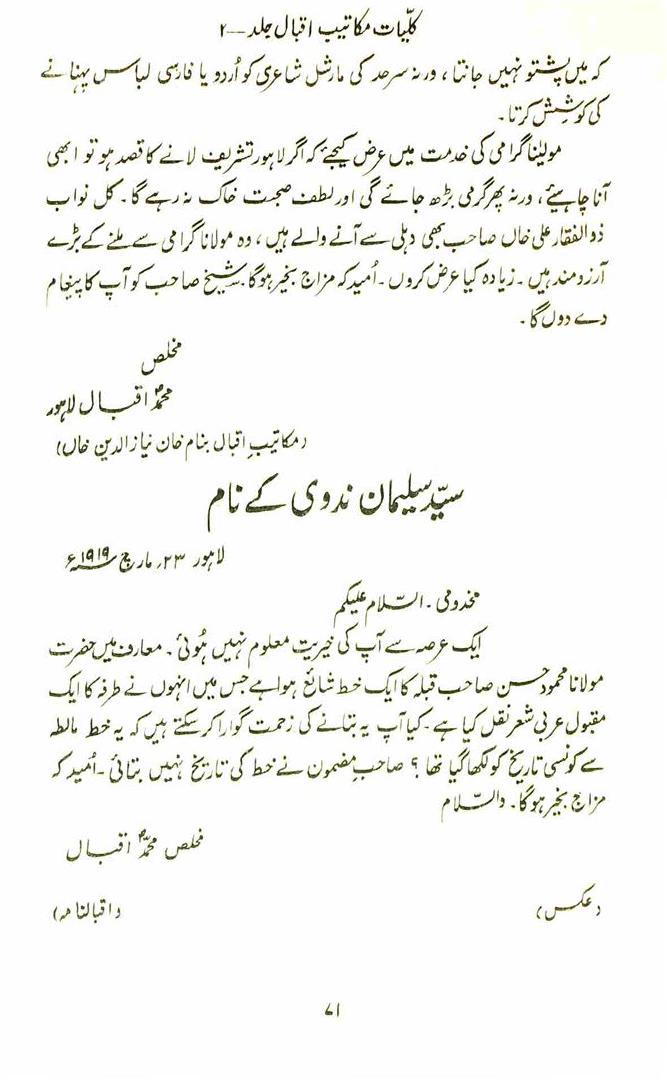 کلّیات مکاتیب اقبال جلد ــ ۲
کہ میں پشتو نہیں جانتا ، ورنہ سرحد کی مارشل شاعری کو اُردو یا فارسی لباس پہنانے
کی کوشش کرتا ۔
مولیٰنا گرامی کی خدمت میں عرض کیجیے کہ اگر لاہور تشریف لانے کا قصد ہو تو ابھی
آنا چاہیئے ، ورنہ پھر گرمی بڑھ جائے گی اور لطفِ صحبت خاک نہ رہے گا ۔ کل نواب
ذوالفقار علی خاں صاحب بھی دہلی سے آنے والے ہیں ، وہ مولانا گرامی سے ملنے کے بڑے
آرزومند ہیں ۔ زیادہ کیا عرض کروں ۔ اُمید کہ مزاج بخیر ہوگا ۔ شیخ صاحب کو آپ کا پیغام
دے دوں گا ۔
مخلص
محمدؐ اقبال لاہور
(مکاتیبِ اقبال بنام خان نیاز الدین خاں)
سیّد سلیمان ندوی کے نام
لاہور ۲۳؍ مارچ ۱۹۱۹ء
مخدومی ۔ السّلام علیکم
ایک عرصہ سے آپ کی خیریت معلوم نہیں ہُوئی ۔ معارف میں حضرت
مولانا محمود حسن صاحب قبلہ کا ایک خط شائع ہوا ہے جس میں انہوں نے طرفہ کا ایک
مقبول عربی شعر نقل کیا ہے ۔ کیا آپ یہ بتانے کی زحمت گوارا کر سکتے ہیں کہ یہ خط مالٹہ
سے کونسی تاریخ کو لکھا گیا تھا ؟ صاحبِ مضمون نے خط کی تاریخ نہیں بتائی ۔ اُمید کہ
مزاج بخیر ہوگا ۔ والسّلام
مخلص محمدؐ اقبال
(عکس) (اقبالنامہ)
۷۱